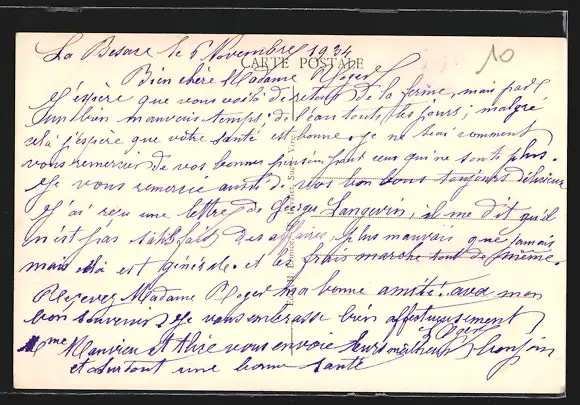 La Besace le 6 Novembre 1934
10
CARTE POSTALE
Bien chère Madame Roger
J'espère que vous voilà de retour de la ferme, mais par
un bien mauvais temps, de l'eau tous les jours; malgré
cela j'espère que votre santé est bonne. Je ne sais comment
vous remercier de vos bonnes pour ceux qui ne sont plus.
Je vous remercie aussi de vos bon bons toujours délicieux
J'ai reçu une lettre de Georges Langevin, il me dit qu'il
n'est pas satisfait des affaires, plus mauvais que jamais
mais cela est générale. et les frais marche tout de même.
Recevez Madame Roger ma bonne amitié avec mon
bon souvenir. Je vous embrasse bien affectueusement
Mme Manvieu et Alice vous envoie leurs meilleurs
et surtout une bonne santé